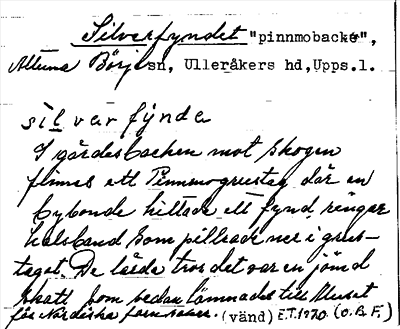 Silverfyndet "pinnmobacke",
Altuna Börje sn, Ulleråkers hd, Upps.l.
silverfynde
I gärdesbacken mot skogen
finnes ett Pinnmogrustag där en
bybonde hittade ett fynd, ringar
halsband som pillrade ner i grus-
taget. De lärde tror det var en jömd
skatt som sedan lämnades till Muset
för Nordiska forn saker. (vänd) E.T. 1970. (O.B.F.)